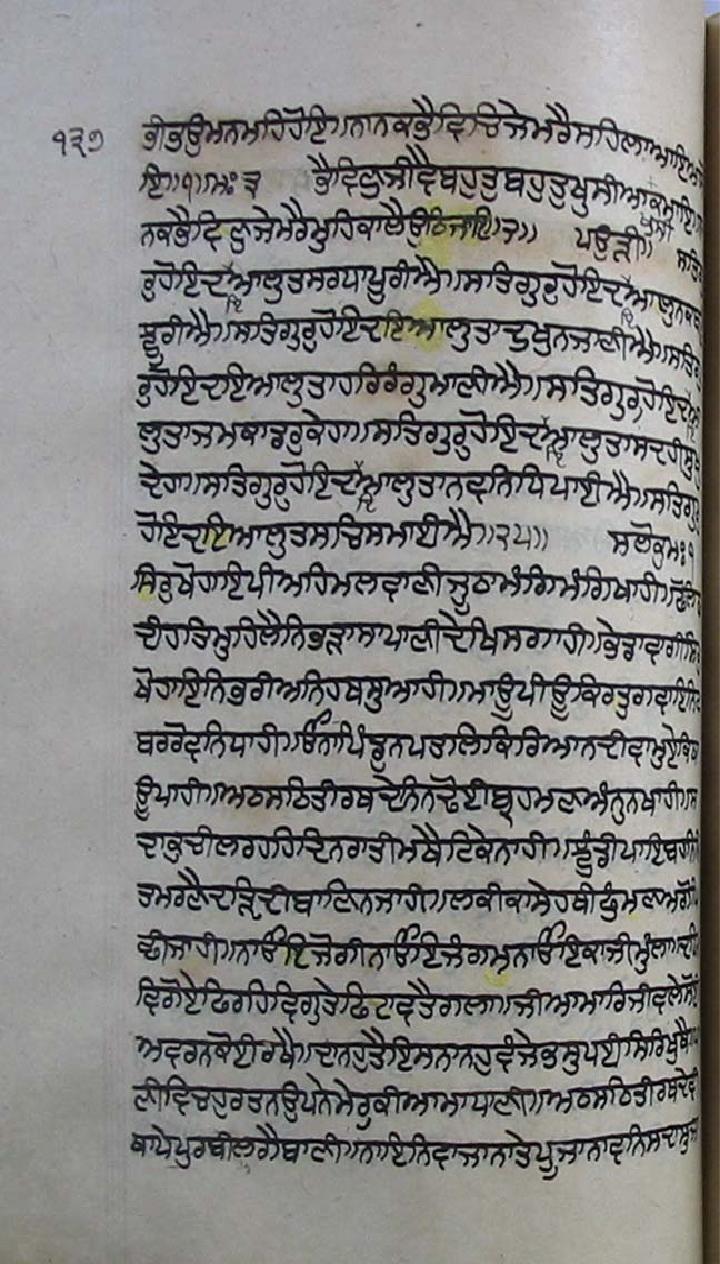 ੧੩੭ ਭੀ ਭਉ ਮਨ ਮਹਿ ਹੋਇ॥ ਨਾਨਕ ਭੈ ਵਿਚਿ ਜੇ ਮਰੈ ਸਹਿਲਾ ਆਇਆ ਸੋ
ਇ॥੧॥ ਮਃ ੩ ਭੈ ਵਿਣੁ ਜੀਵੈ ਬਹੁਤੁ ਬਹੁਤੁ ਖੁਸੀਆ ਖੁਸੀ ਕਮਾਇ॥
ਨਕ ਭੈ ਵਿਣੁ ਜੇ ਮਰੈ ਮੁਹਿ ਕਾਲੈ ਉਠਿ ਜਾਇ॥੨॥ ਪਉੜੀ॥ ਸਤਿ
ਰੁ ਹੋਇ ਦਇਆਲੁ ਤ ਸਰਧਾ ਪੂਰੀਐ॥ ਸਤਿਗੁਰੁ ਹੋਇ ਦਇਆਲੁ ਨ ਕਬਹੂ
ਝੂਰੀਐ॥ ਸਤਿਗੁਰੁ ਹੋਇ ਦਇਆਲੁ ਤਾ ਦੁਖੁ ਨ ਜਾਣੀਐ॥ ਸਤਿਗੁ
ਰੁ ਹੋਇ ਦਇਆਲੁ ਤਾ ਹਰਿ ਰੰਗੁ ਮਾਣੀਐ॥ ਸਤਿਗੁਰੁ ਹੋਇ ਦਇਆ
ਲੁ ਤਾ ਜਮ ਕਾ ਡਰੁ ਕੇਹਾ॥ ਸਤਿਗੁਰੁ ਹੋਇ ਦਇਆਲੁ ਤਾ ਸਦ ਹੀ ਸੁਖੁ
ਦੇਹਾ॥ ਸਤਿਗੁਰੁ ਹੋਇ ਦਇਆਲੁ ਤਾ ਨਵ ਨਿਧਿ ਪਾਈਐ॥ ਸਤਿਗੁਰੁ
ਹੋਇ ਦਇਆਲੁ ਤ ਸਚਿ ਸਮਾਈਐ॥੨੫॥ ਸਲੋਕੁ ਮਃ ੧
ਸਿਰੁ ਖੋਹਾਇ ਪੀਅਹਿ ਮਲਵਾਣੀ ਜੂਠਾ ਮੰਗਿ ਮੰਗਿ ਖਾਹੀ॥ ਫੋਲਿ ਫ
ਦੀਹਤਿ ਮੁਹਿ ਲੈਨਿ ਭੜਾਸਾ ਪਾਣੀ ਦੇਖਿ ਸਗਾਹੀ॥ ਭੇਡਾ ਵਾਗੀ ਸਿਰੁ
ਖੋਹਾਇਨਿ ਭਰੀਅਨਿ ਹਥ ਸੁਆਹੀ॥ ਮਾਊ ਪੀਊ ਕਿਰਤੁ ਗਵਾਇਨਿ
ਬਰ ਰੋਵਨਿ ਧਾਹੀ॥ ਓਨਾ ਪਿੰਡੁ ਨ ਪਤਲਿ ਕਿਰਿਆ ਨ ਦੀਵਾ ਮੁਏ ਕਿਥ
ਊ ਪਾਹੀ॥ ਅਠਸਠਿ ਤੀਰਥ ਦੇਨਿ ਨ ਢੋਈ ਬ੍ਰਹਮਣ ਅੰਨੁ ਨ ਖਾਹੀ॥ ਸ
ਦਾ ਕੁਚੀਲ ਰਹਹਿ ਦਿਨ ਰਾਤੀ ਮਥੈ ਟਿਕੇ ਨਾਹੀ॥ ਝੁੰਡੀ ਪਾਇ ਬਹਨਿ ਨਿ
ਤਿ ਮਰਣੈ ਦੜਿ ਦੀਬਾਣਿ ਨ ਜਾਹੀ॥ ਲਕੀ ਕਾਸੇ ਹਥੀ ਫੁੰਮਣ ਅਗੋ ਪਿ
ਛੀ ਜਾਹੀ॥ ਨਾ ਓਇ ਜੋਗੀ ਨਾ ਓਇ ਜੰਗਮ ਨਾ ਓਇ ਕਾਜੀ ਮੁੰਲਾ॥ ਦਯਿ
ਵਿਗੋਏ ਫਿਰਹਿ ਵਿਗੁਤੇ ਫਿਟਾ ਵਤੈ ਗਲਾ॥ ਜੀਆ ਮਾਰਿ ਜੀਵਾਲੇ ਸੋਈ
ਅਵਰੁ ਨ ਕੋਈ ਰਖੈ॥ ਦਾਨਹੁ ਤੈ ਇਸਨਾਨਹੁ ਵੰਜੇ ਭਸੁ ਪਈ ਸਿਰਿ ਖੁਥੈ॥
ਣੀ ਵਿਚਹੁ ਰਤਨ ਉਪਨੇ ਮੇਰੁ ਕੀਆ ਮਾਧਾਣੀ॥ ਅਠਸਠਿ ਤੀਰਥ ਦੇਵੀ
ਥਾਪੇ ਪੁਰਬੀ ਲਗੈ ਬਾਣੀ॥ ਨਾਇ ਨਿਵਾਜਾ ਨਾਤੇ ਪੂਜਾ ਨਾਵਨਿ ਸਦਾ ਸੁਜਾ